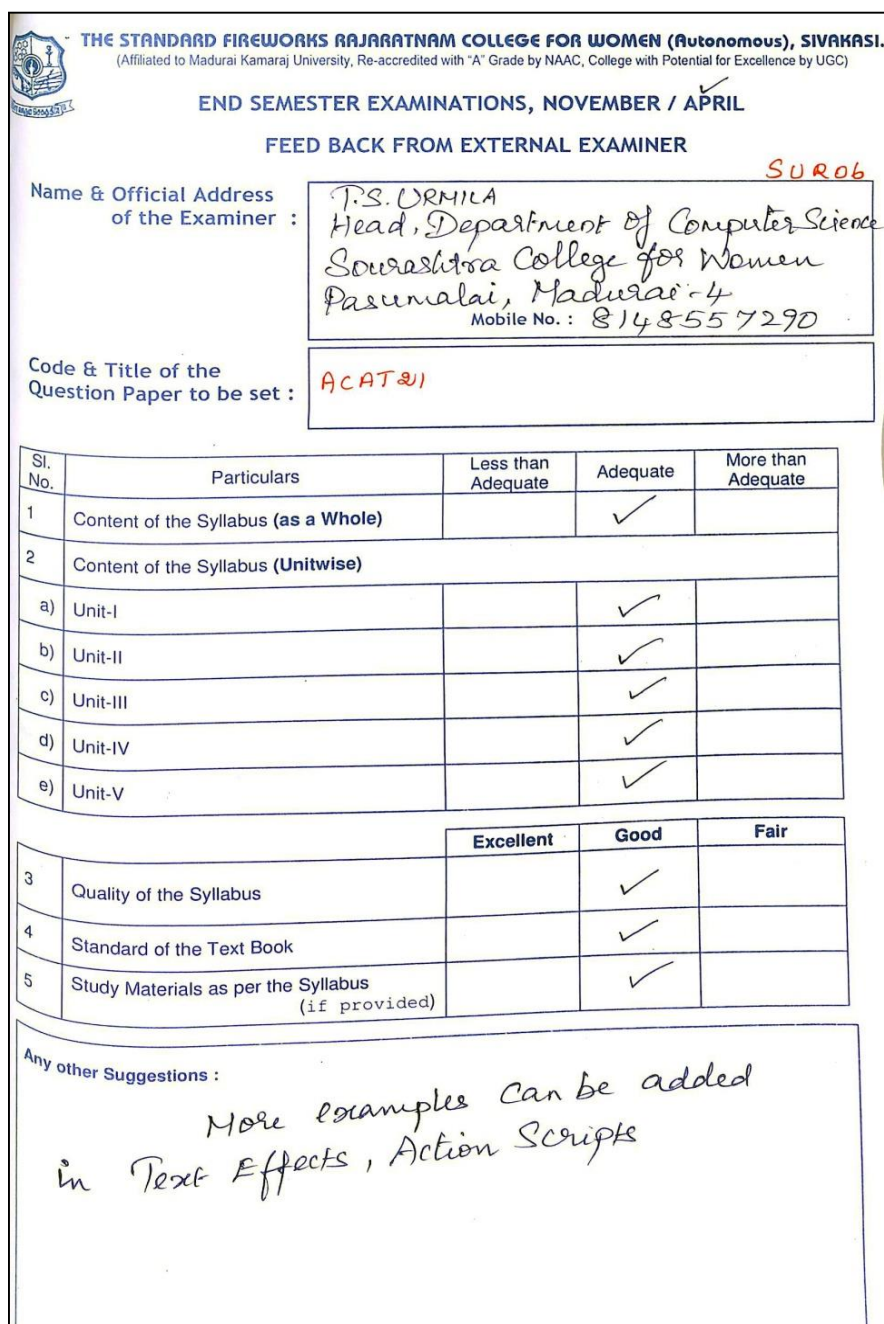 THE STANDARD FIREWORKS RAJARATNAM COLLEGE FOR WOMEN (Autonomous), SIVAKASI.
(Affiliated to Madurai Kamaraj University, Re-accredited with "A" Grade by NAAC, College with Potential for Excellence by UGC)
END SEMESTER EXAMINATIONS, NOVEMBER / APRIL
FEED BACK FROM EXTERNAL EXAMINER
SUR06
Name & Official Address
of the Examiner :
T.S. URMILA
Head, Department of Computer Science
Sourashtra College for Women
Pasumalai, Madurai-4
Mobile No. : 8148557290
Code & Title of the
Question Paper to be set :
ACAT21
Sl. No. Particulars Less than Adequate Adequate More than Adequate
1 Content of the Syllabus (as a Whole) ✓
2 Content of the Syllabus (Unitwise)
a) Unit-I ✓
b) Unit-II ✓
c) Unit-III ✓
d) Unit-IV ✓
e) Unit-V ✓
Excellent Good Fair
3 Quality of the Syllabus ✓
4 Standard of the Text Book ✓
5 Study Materials as per the Syllabus ✓
(if provided)
Any other Suggestions :
More examples can be added
in Text Effects, Action Scripts